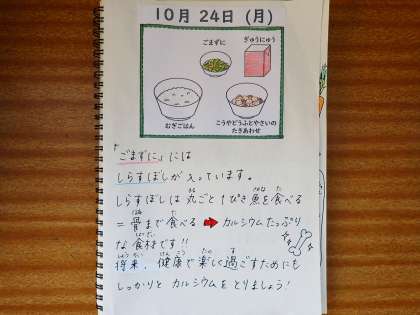 10月 24日 (月)
ごまずに
ぎゅうにゅう
むぎごはん
こうやどうふとやさいの
たきあわせ
「ごまずに」には
しらすぼしが入っています。
しらすぼしは丸ごと1ぴき魚を食べる
=骨まで食べる ➡ カルシウムたっぷり
な食材です!!
将来、健康で楽しく過ごすためにも
しっかりと カルシウムをとりましょう!